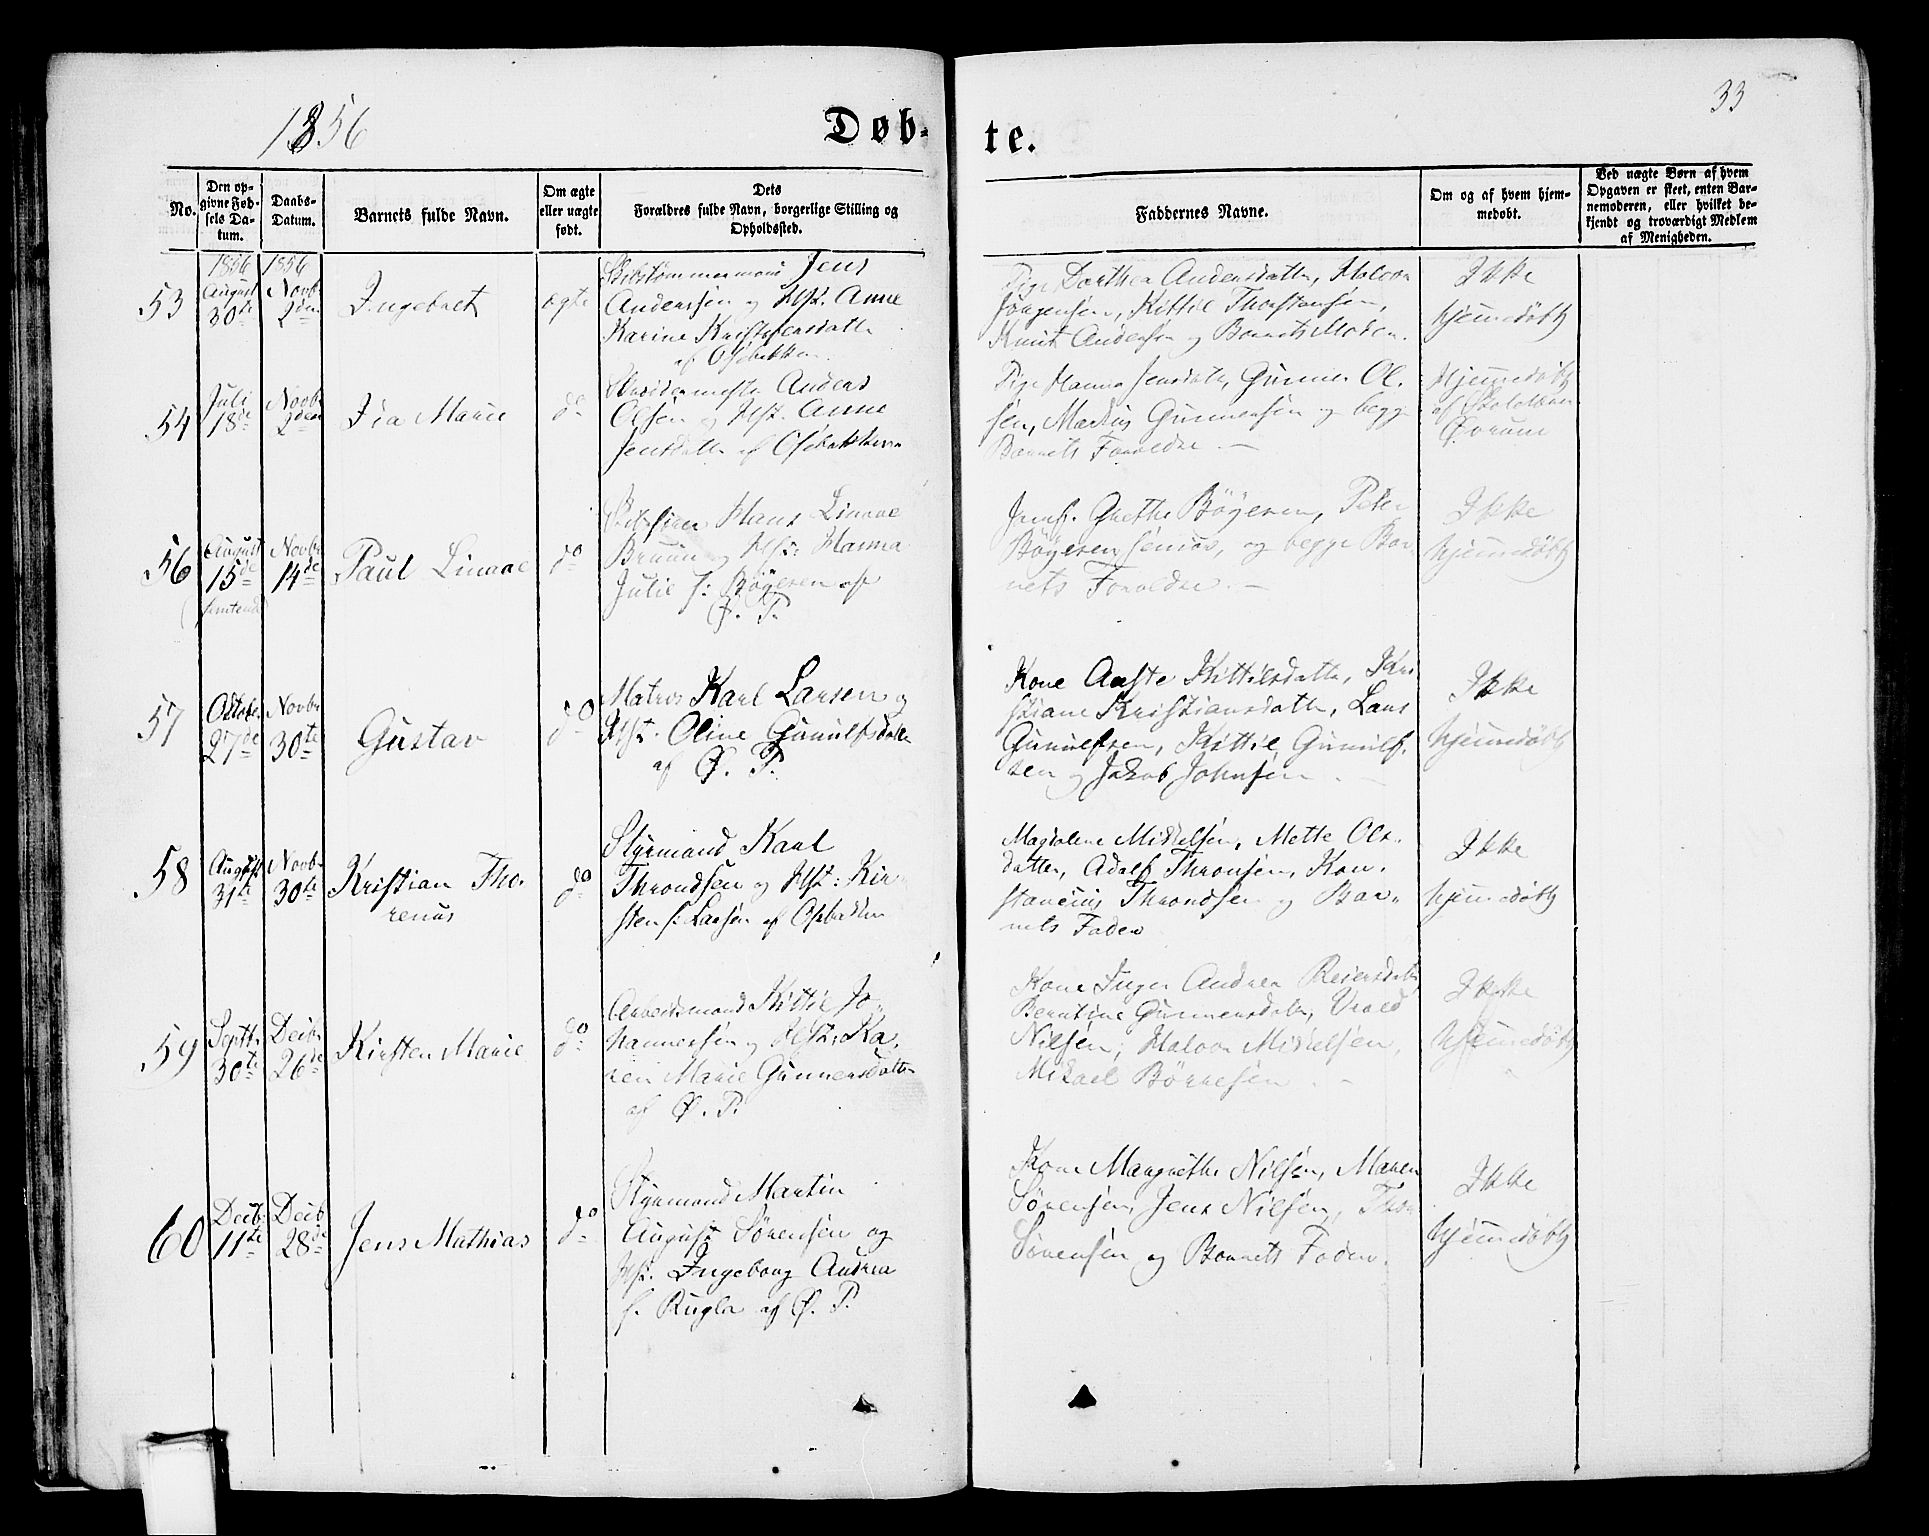 1856
33
Døb-
te.
No.
Den op-
givne Fød-
sels Da-
tum.
Daabs-
Datum.
Barnets fulde Navn.
Om ægte
eller uægte
født.
Dets
Forældres fulde Navn, borgerlige Stilling og
Opholdssted.
Faddernes Navne.
Om og af hvem hjem-
medøbt.
Ved uægte Børn af hvem
Opgaven er skeet, enten Bar-
nemoderen, eller hvilket be-
kjendt og troværdigt Medlem
af Menigheden.
53
1856
August
30te
1856
Novb.
2den
Ingebret
ægte
Skibstømmermand Jens
Anderssen og Hst. Anne
Karine Kristofersdatter
af Osebakken
Pige Dorthea Andersdatter, Halvor
Jørgensen, Kittil Thorstensen,
Knut Andersen og Barnets Moder.
Ikke
hjemmedøbt
54
Juli
18de
Novb.
2den
Ida Marie
do
Anders
Olsen og Hst. Anne
Jensdatter af Osebakken
Pige Hanna Jensdatter, Gunner Ol-
sen, Martius Gunnersen og begge
Barnets Forældre. —
Hjemmedøbt
af
56
August
15de
(femtende)
Novb.
14de
Paul Linaae
do
Hans Linaae
Bruun og Hst. Hanna
Julie f: Bøyesen af
Ø. P.
Jmfr. Grethe Bøyesen, Peter
Bøyesen senior, og begge Bar
nets Forældre. —
Ikke
hjemmedøbt
57
Oktober
27de
Novbr
30te
Gustav
do
Matros Karl Larsen og
Hst. Oline Gunulfsdatter
af Ø. P.
Kone Aaste Kittilsdatter, Kri
stiane Kristiansdatter, Lars
Gunulfsen, Kittil Gunulf-
sen og Jakob Johnsen. —
Ikke
hjemmedøbt
58
August
31te
Novb.
30te
Kristian Tho-
renus
do
Styrmand Karl
Throndsen og Hst: Kir
sten f: Larsen af Osebakken
Magdalene Mikkelsen, Mette Ols-
datter, Adolf Thronsen, Kon-
stancius Throndsen og Bar-
nets Fader
Ikke
hjemmedøbt
59
Septb.
30te
Decb.
26de
Kirsten Marie
do
Arbeidsmand Kittil Jo-
hannessen og Hst: Ka-
ren Marie Gunnersdatter
af Ø. P.
Kone Inger Andrea Reiersdatter
Berntine Gunnersdatter,
Nilsen, Halvor Mikkelsen,
Mikael Børresen. —
Ikke
hjemmedøbt
60
Decb.
11te
Decb.
28de
Jens Mathias
do
Styrmand Martin
August Sørensen og
Hst. Ingeborg Andrea
f. Rugla af Ø. P.
Kone Margrethe Nilsen, Maren
Sørensen, Jens Nilsen, Thor
Sørensen og Barnets Fader.
Ikke
hjemmedøbt